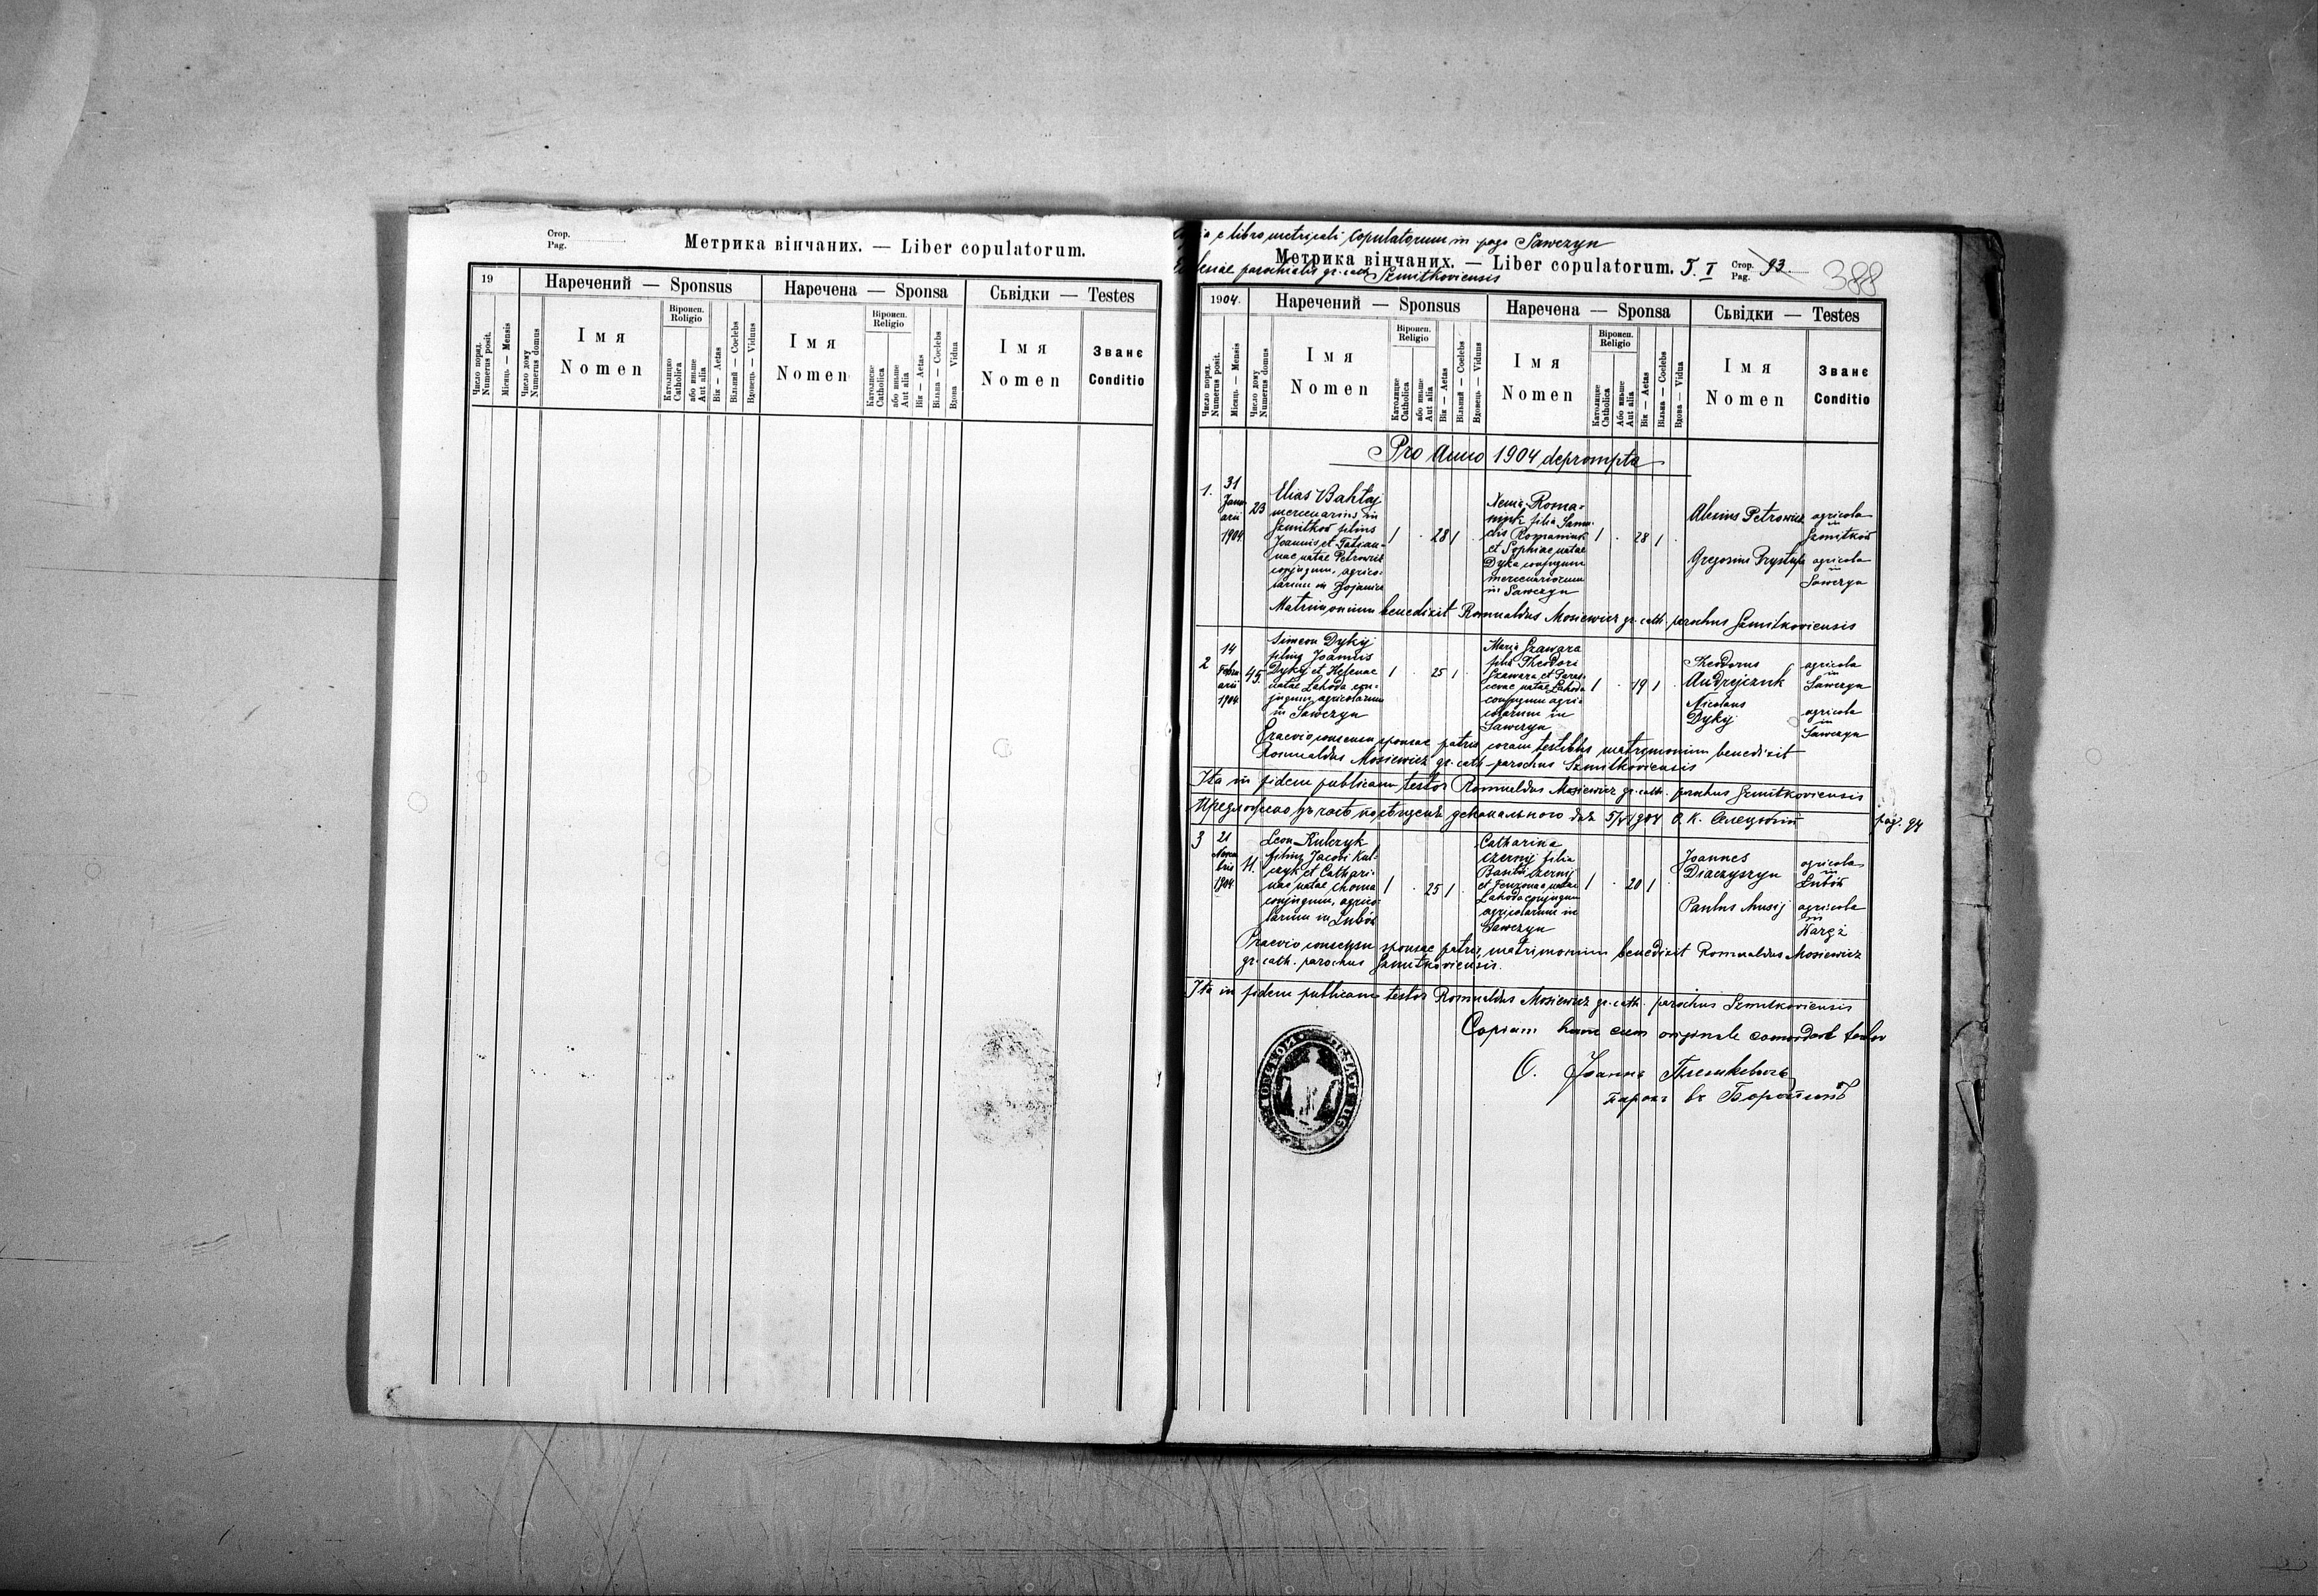 Стор.
Pag.
Метрика вінчаних. — Liber copulatorum.
19
Наречений — Sponsus
Наречена — Sponsa
Сьвідки — Testes
Число поряд.
Numerus posit.
Місяць — Mensis
Число дому
Numerus domus
Імя
Nomen
Віроисп.
Religio
Католицке
Catholica
або иньше
Aut alia
Вік — Aetas
Вільний — Coelebs
Вдовець — Viduus
Імя
Nomen
Віроисп.
Religio
Католицке
Catholica
або иньше
Aut alia
Вік — Aetas
Вільна — Coelebs
Вдова Vidua
Імя
Nomen
Званє
Conditio
e libro metricali Copulatorum in pago Sawczyn
Метрика вінчаних. — Liber copulatorum. T. I Стор. Pag. 93. 388
parochialis gr. cath. Szmitkoviensis
1904.
Наречений — Sponsus
Наречена — Sponsa
Сьвідки — Testes
Число поряд.
Numerus posit.
Місяць — Mensis
Число дому
Numerus domus
Імя
Nomen
Віроисп.
Religio
Католицке
Catholica
або иньше
Aut alia
Вік — Aetas
Вільний — Coelebs
Вдовець — Viduus
Імя
Nomen
Віроисп.
Religio
Католицке
Catholica
Або иньше
Aut alia
Вік — Aetas
Вільна — Coelebs
Вдова — Vidua
Імя
Nomen
Званє
Conditio
Pro Anno 1904 deprompta
1.
31
Janu
arii
1904
23
Elias Bahtaj
mercenarius in
Szmitków filius
Joannis et Tatian-
nae natae Petrowicz
conjugum, agrico-
larum in
1 28 1
Roma-
niuk filia Samu-
elis Romaniuk
et Sophiae natae
Dyka conjugum
mercenariorum
in Sawczyn
1 28 1
Alexius Petrowicz
agricola
in
Szmitków
Gregorius Prystupa
agricola
in
Sawczyn
Matrimonium benedixit Romualdus Mosiewicz gr. cath. parochus Szmitkoviensis
2
14
Febru
arii
1904
45.
Simeon Dykyj
filius Joannis
Dykyj et Helenae
natae Lahoda con-
jugum agricolarum
in Sawczyn
1 25 1
Maria Szawara
filia Theodori
Szawara et Paras-
cevae natae Lahoda
conjugum agri-
colarum in
Sawczyn
1 19 1
Theodorus
Andrejczuk
agricola
in
Sawczyn
Nicolaus
Dykyj
agricola
in
Sawczyn
Praevio consensu sponsae patris coram testibus matrimonium benedixit
Romualdus Mosiewicz gr. cath. parochus Szmitkoviensis
Ita in fidem publicam testor Romualdus Mosiewicz gr. cath. parochus Szmitkoviensis
деканального 1904 О. К.
pag. 94
3
21
Novem
bris
1904
11.
Leon Kulczyk
filius Jacobi Kul-
czyk et Cathari-
nae natae Choma
conjugum, agrico-
larum in Lubów
1 25 1
Catharina
Czernij filia
Basilii Czernij
et natae
Lahoda conjugum
agricolarum in
Sawczyn
1 20 1
Joannes
Diaczyszyn
agricola
in
Lubów
Paulus Musij
agricola
in
Wareż
Praevio consensu sponsae patris, matrimonium benedixit Romualdus Mosiewicz
gr. cath. parochus Szmitkoviensis.
Ita in fidem publicam testor Romualdus Mosiewicz gr. cath. parochus Szmitkoviensis
Copiam hanc cum originale concordare testor
О. Іоаннъ
парохъ въ